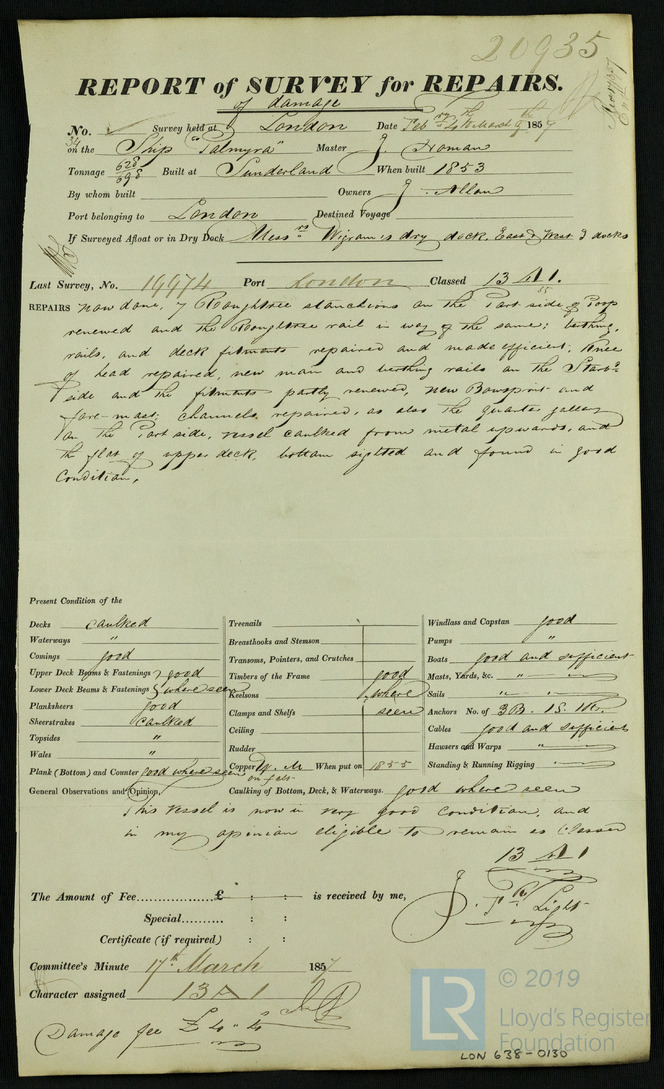 20935
REPORT of SURVEY for REPAIRS.
of damage
No. 34 Survey held at London Date Feby 24th & March 9th 1857
on the Ship "Palmyra" Master J Homan
Tonnage 628/698 Built at Sunderland When built 1853
By whom built Owners J. Allan
Port belonging to London Destined Voyage
If Surveyed Afloat or in Dry Dock Messrs Wigram's dry dock, East & West I docks
Last Survey, No. 19974 Port London Classed 13 A 1.
55
REPAIRS now done, 7 Roughtree stanctions on the Port side of Poop
renewed and the Roughtree rail in way of the same; berthing,
rails, and deck fitments repaired and made efficient; Knee
of head repaired, new main and berthing rails on the Starbd
side and the fitments partly renewed, new Bowsprit and
fore-mast; channels repaired, as also the quarter gallery
on the Port side, vessel caulked from metal upwards, and
the flat of upper deck, bottom sighted and found in good
Condition.
Present Condition of the
Decks caulked
Waterways "
Comings good
Upper Deck Beams & Fastenings } good
Lower Deck Beams & Fastenings } where seen
Planksheers good
Sheerstrakes caulked
Topsides "
Wales "
Plank (Bottom) and Counter good where seen
Treenails
Breasthooks and Stemson
Transoms, Pointers, and Crutches
Timbers of the Frame good
Keelsons where
Clamps and Shelfs seen
Ceiling
Rudder
Copper Y. M. When put on 1855
on felt
Caulking of Bottom, Deck, & Waterways. good where seen
Windlass and Capstan good
Pumps "
Boats good and sufficient
Masts, Yards, &c. "
Sails " "
Anchors No. of 3B. 1S. 1K.
Cables good and sufficient
Hawsers and Warps "
Standing & Running Rigging "
General Observations and Opinion,
This vessel is now in very good condition, and
in my opinion eligible to remain as classed
13 A 1
The Amount of Fee................£ : : is received by me,
Special.......... : :
Certificate (if required) : :
Light
Committee's Minute 17th March 1857
Character assigned 13 A 1
Damage fee £4 " 4
© 2019
LR
Lloyd's Register
Foundation
LON 638-0130